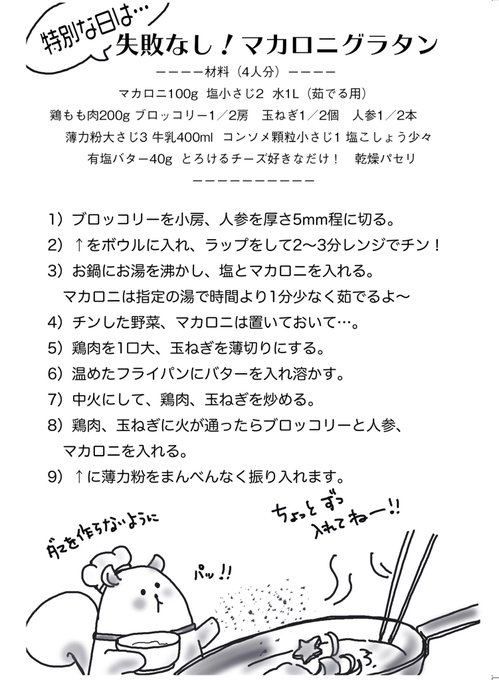 特別な日は…
失敗なし！マカロニグラタン
ーーーー材料（4人分）ーーーー
マカロニ100g 塩小さじ2 水1L（茹でる用）
鶏もも肉200g ブロッコリー1／2房 玉ねぎ1／2個 人参1／2本
薄力粉大さじ3 牛乳400ml コンソメ顆粒小さじ1 塩こしょう少々
有塩バター40g とろけるチーズ好きなだけ！ 乾燥パセリ
ーーーーーーーーーー
1）ブロッコリーを小房、人参を厚さ5mm程に切る。
2）↑をボウルに入れ、ラップをして2〜3分レンジでチン！
3）お鍋にお湯を沸かし、塩とマカロニを入れる。
マカロニは指定の湯で時間より1分少なく茹でるよ〜
4）チンした野菜、マカロニは置いておいて…。
5）鶏肉を1口大、玉ねぎを薄切りにする。
6）温めたフライパンにバターを入れ溶かす。
7）中火にして、鶏肉、玉ねぎを炒める。
8）鶏肉、玉ねぎに火が通ったらブロッコリーと人参、
マカロニを入れる。
9）↑に薄力粉をまんべんなく振り入れます。
ちょっとずつ
入れてねー!!
ダマを作らないように
パッ!!